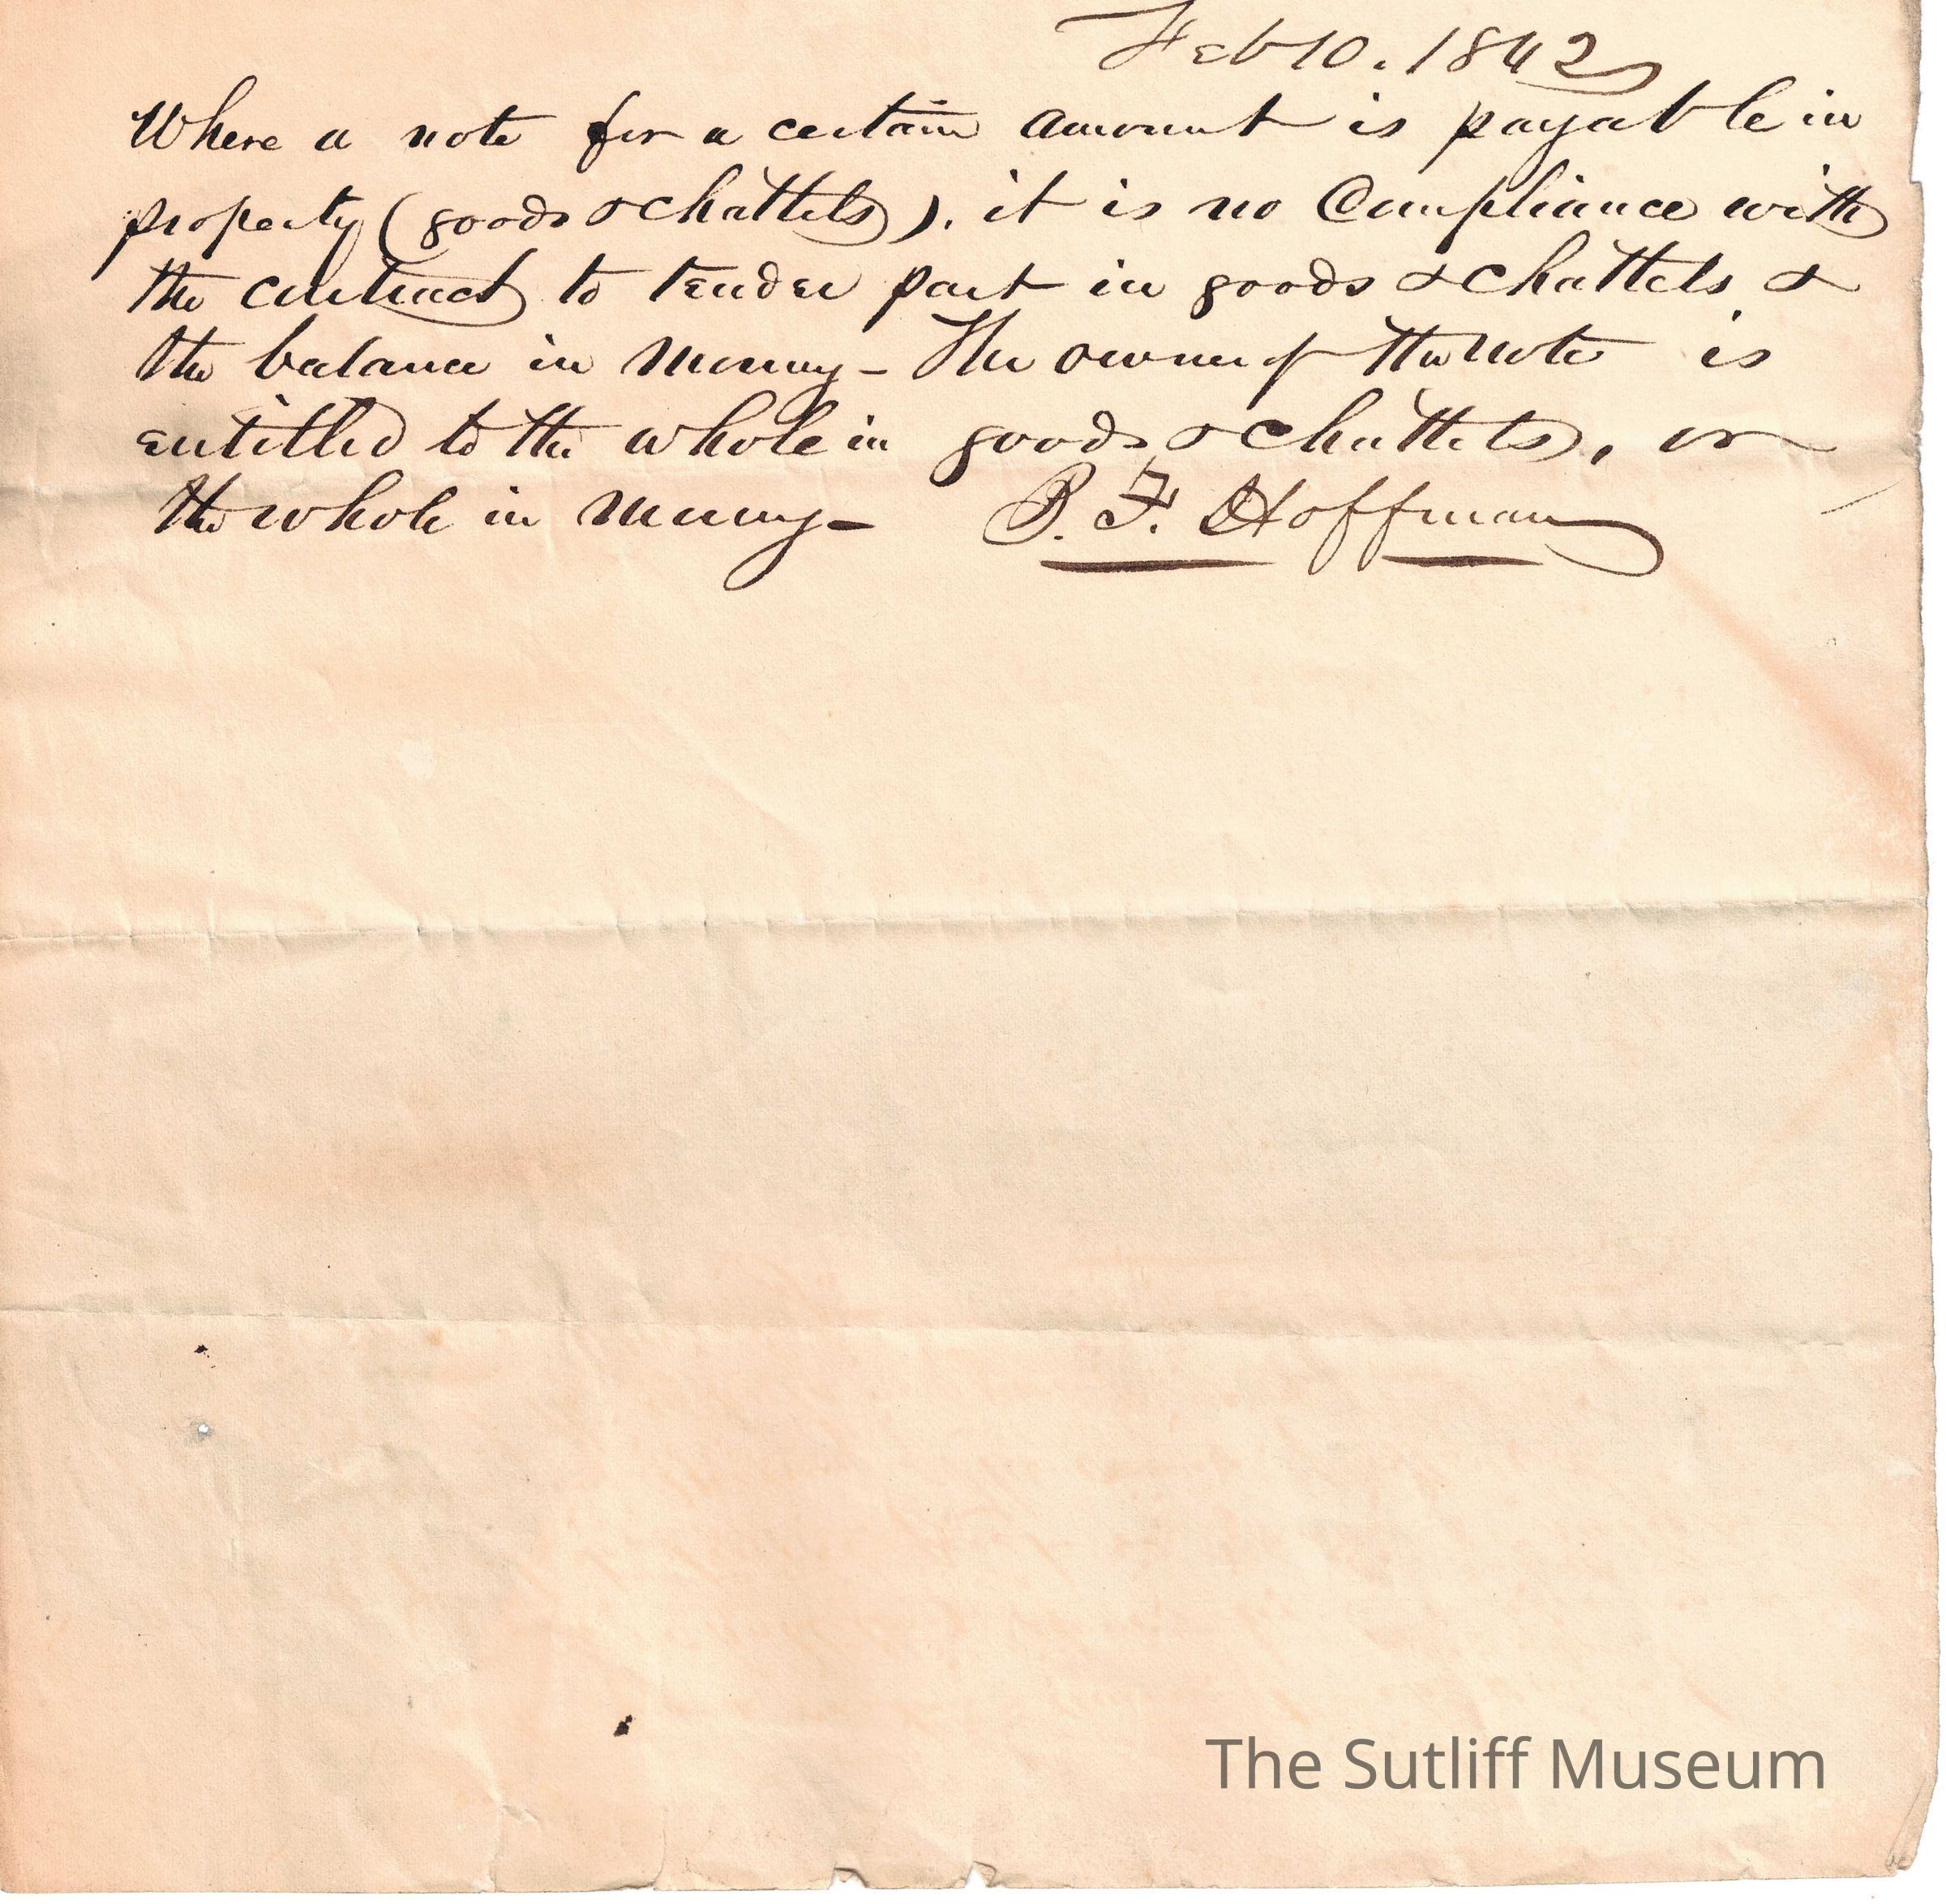 Feb 10. 1842
Where a note for a certain amount is payable in
property (goods & chattels), it is no Compliance with
the contract to tender part in goods & chattels &
the balance in Money - The owner of the note is
entitled to the whole in goods & chattels, or
the whole in Money - B. F. Hoffman
The Sutliff Museum